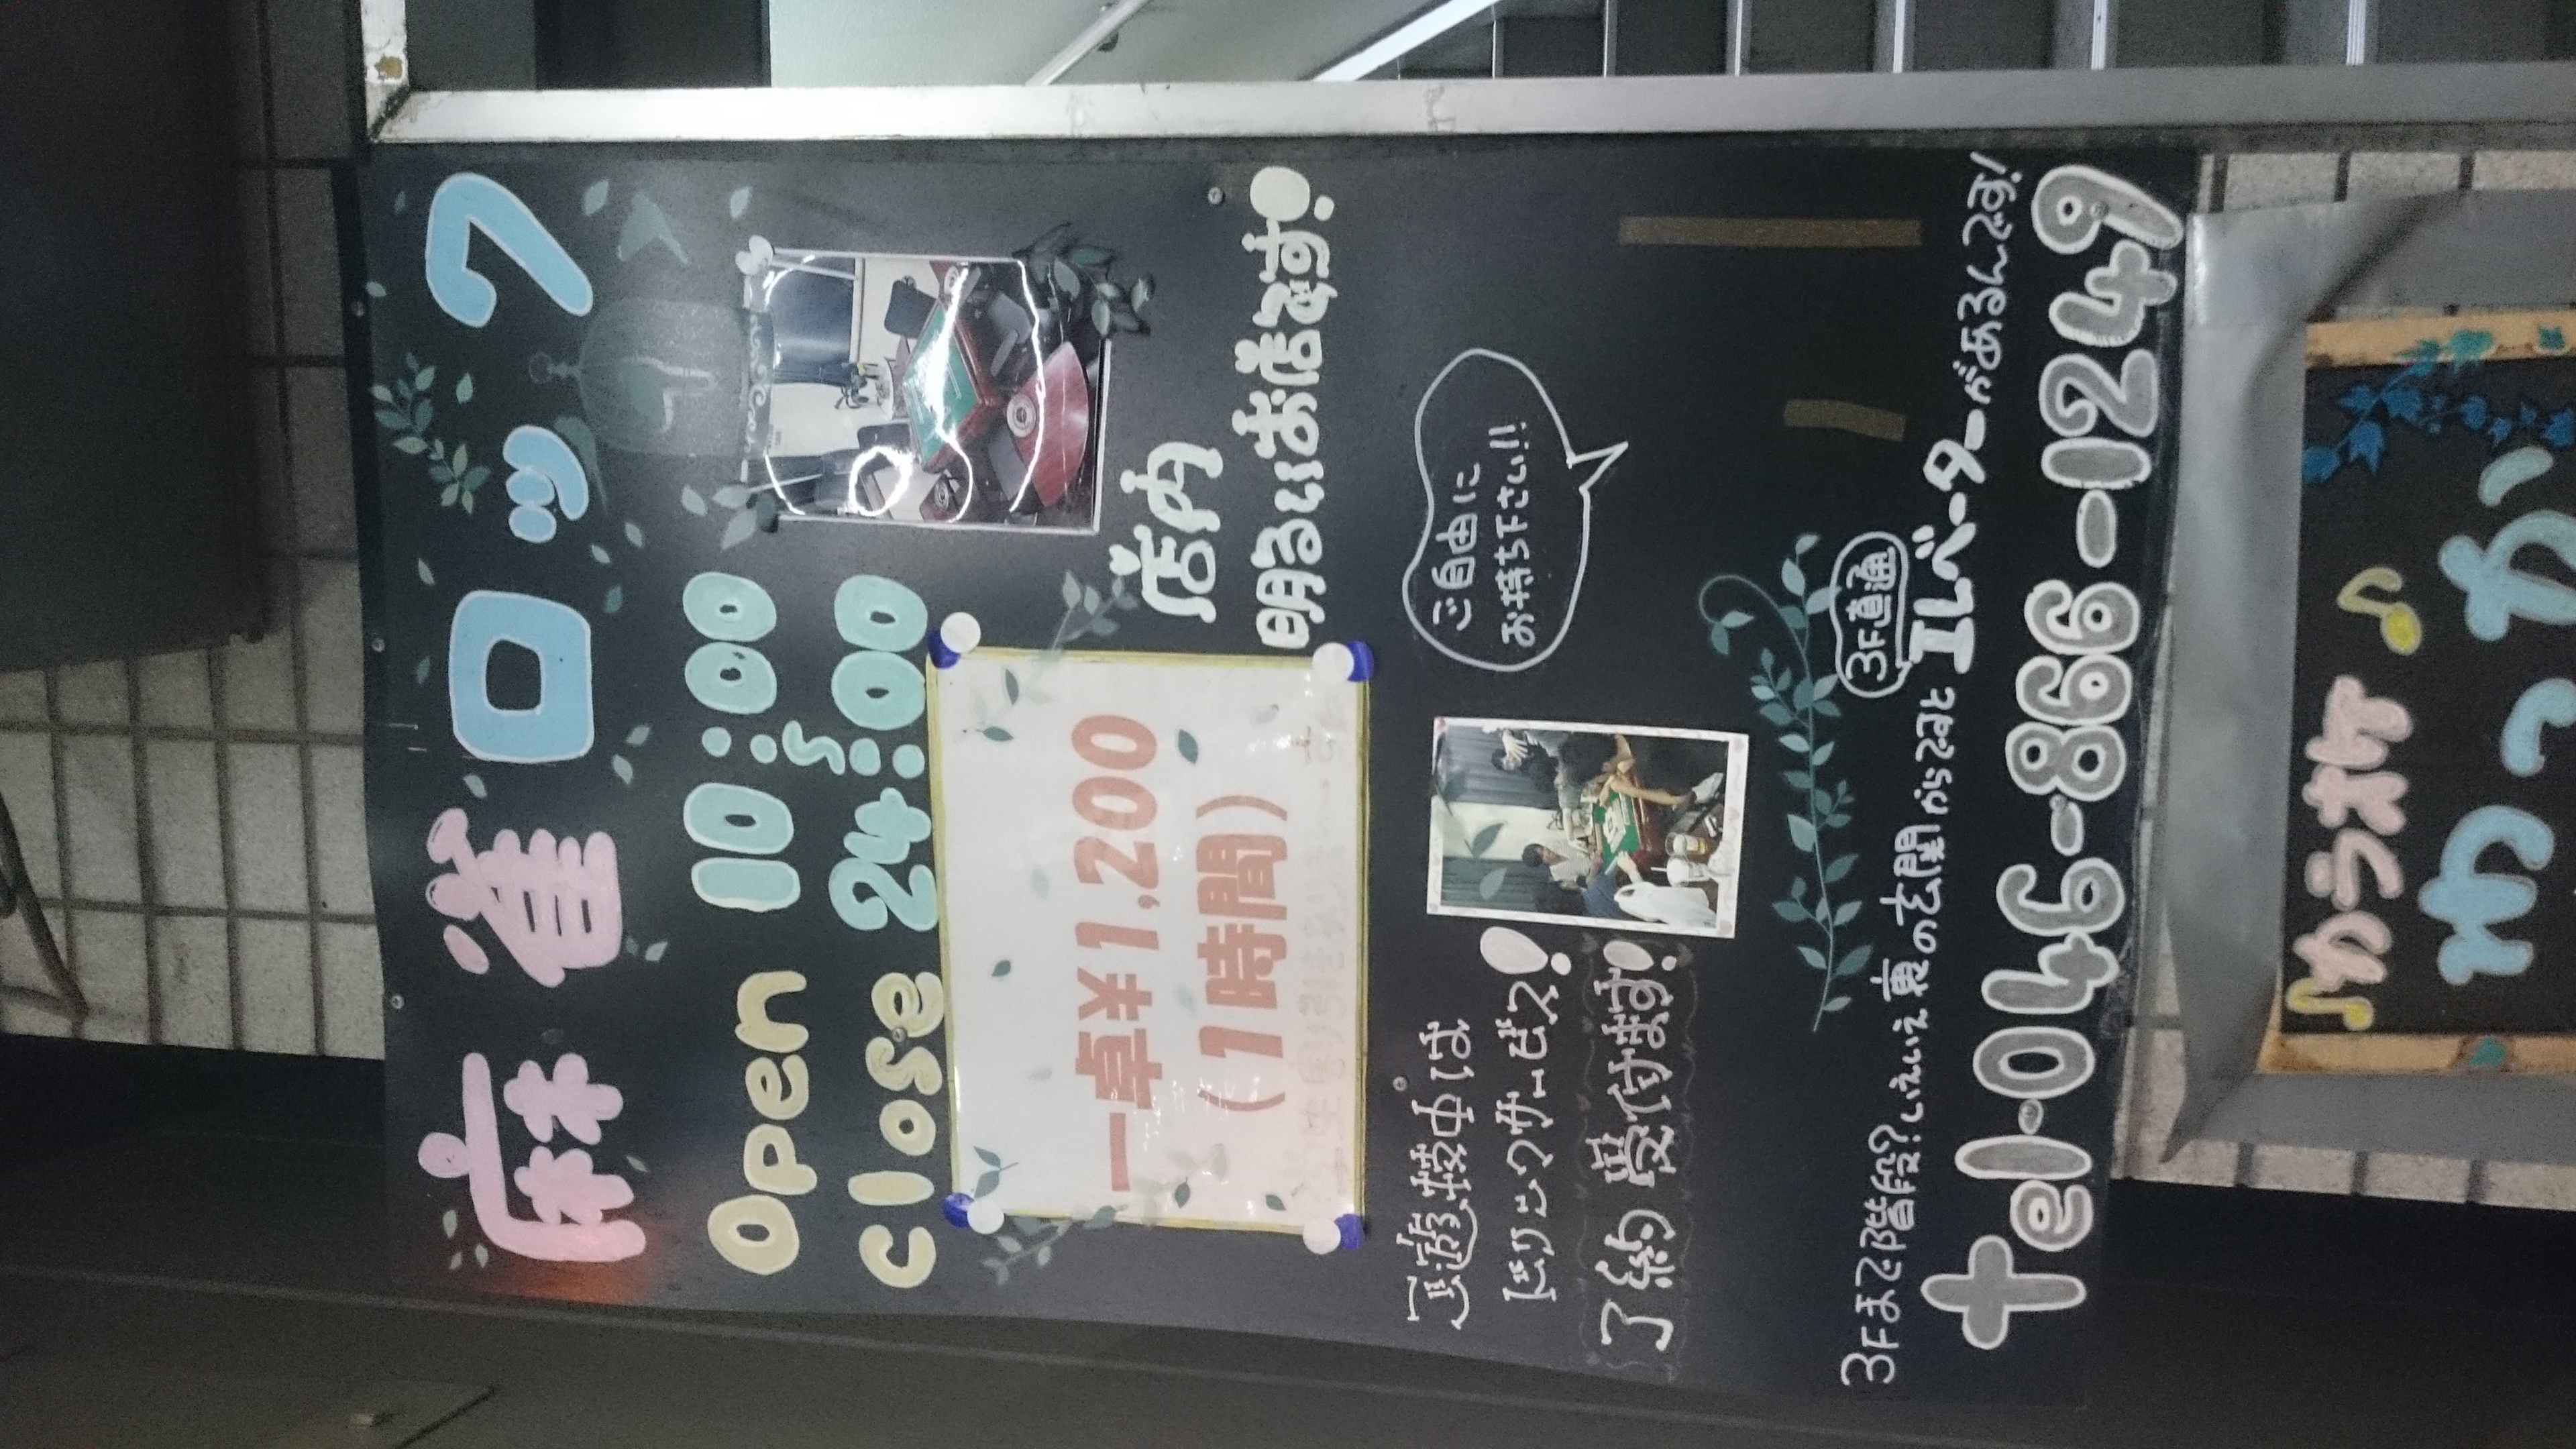 麻雀 ロック
Open 10:00
〜
close 24:00
一卓¥1,200
(1時間)
店内
明るいお店です!
ご遊技中は
ドリンクサービス!
予約 受付ます!
ご自由に
お持ち下さい!!
3F直通
3Fまで階段?いえいえ裏の玄関からですとエレベーターがあるんです!
tel-046-866-1249
♪カラオケ♪